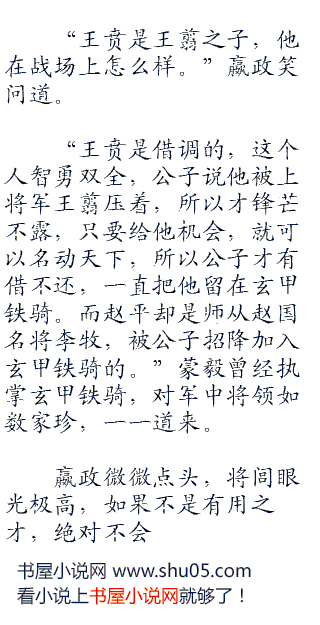 “王贲是王翦之子，他
在战场上怎么样。”嬴政笑
问道。
“王贲是借调的，这个
人智勇双全，公子说他被上
将军王翦压着，所以才锋芒
不露，只要给他机会，就可
以名动天下，所以公子才有
借不还，一直把他留在玄甲
铁骑。而赵平却是师从赵国
名将李牧，被公子招降加入
玄甲铁骑的。”蒙毅曾经执
掌玄甲铁骑，对军中将领如
数家珍，一一道来。
嬴政微微点头，将闾眼
光极高，如果不是有用之
才，绝对不会
书屋小说网 www.shu05.com
看小说上书屋小说网就够了！